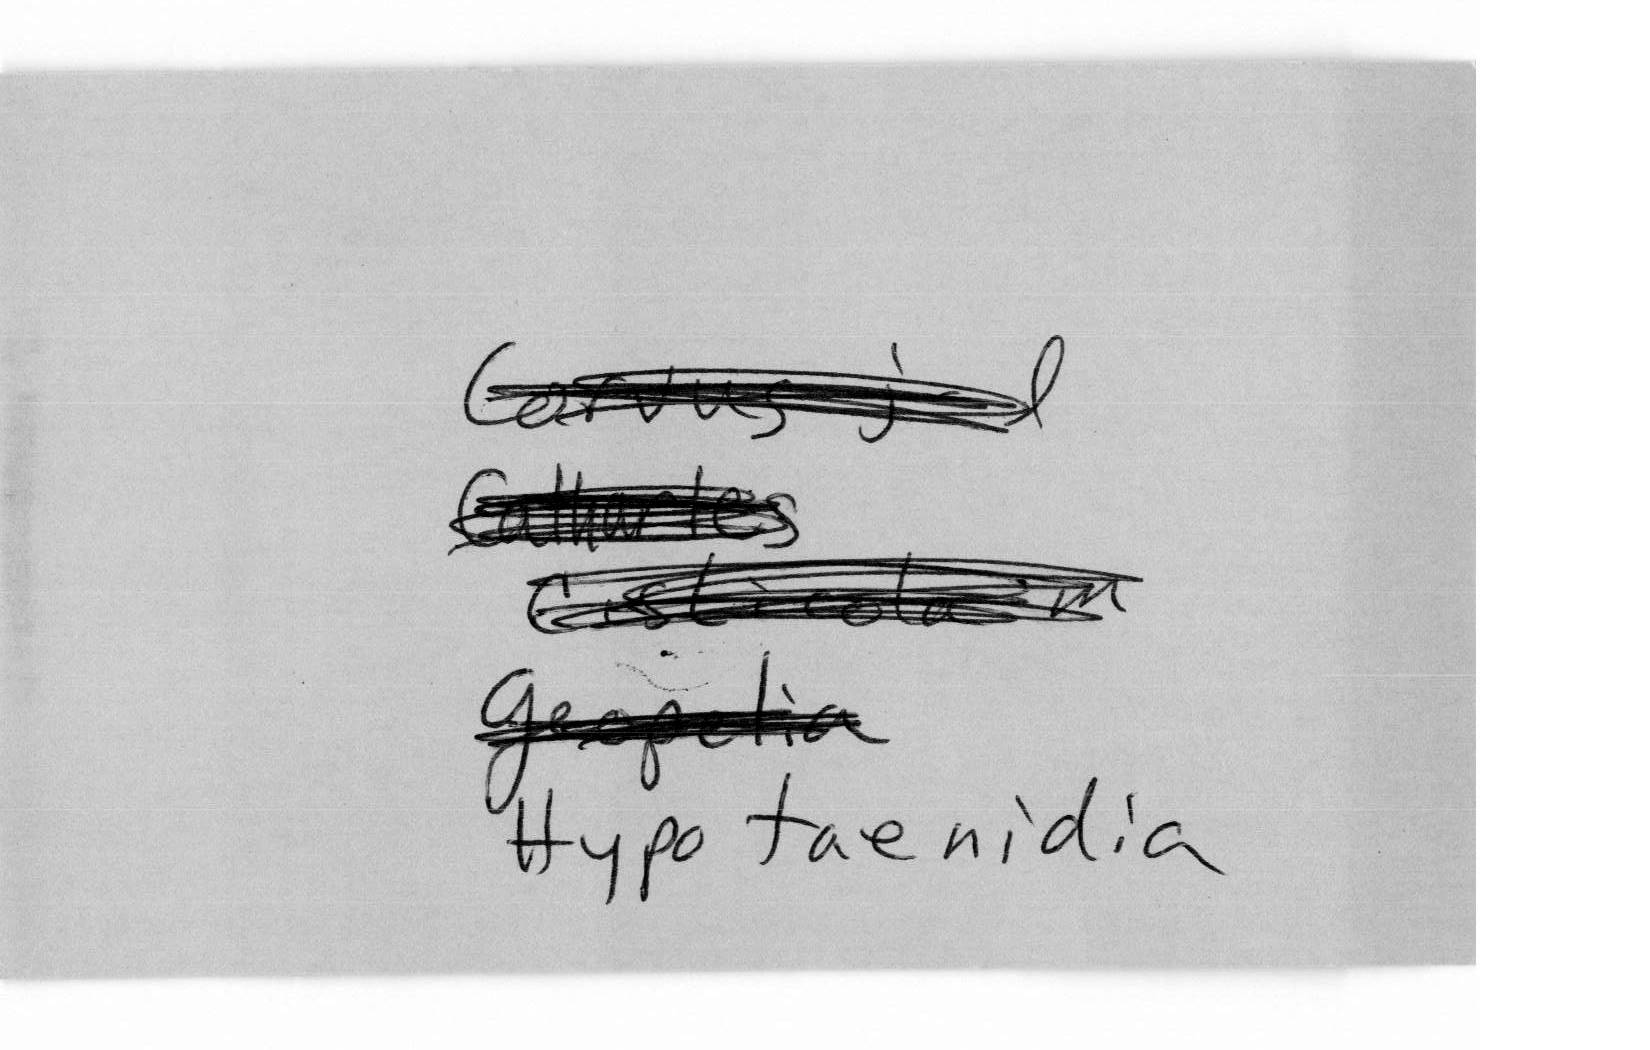 Corvus j
Cathartes
Cisticola m
Geopelia
Hypotaenidia